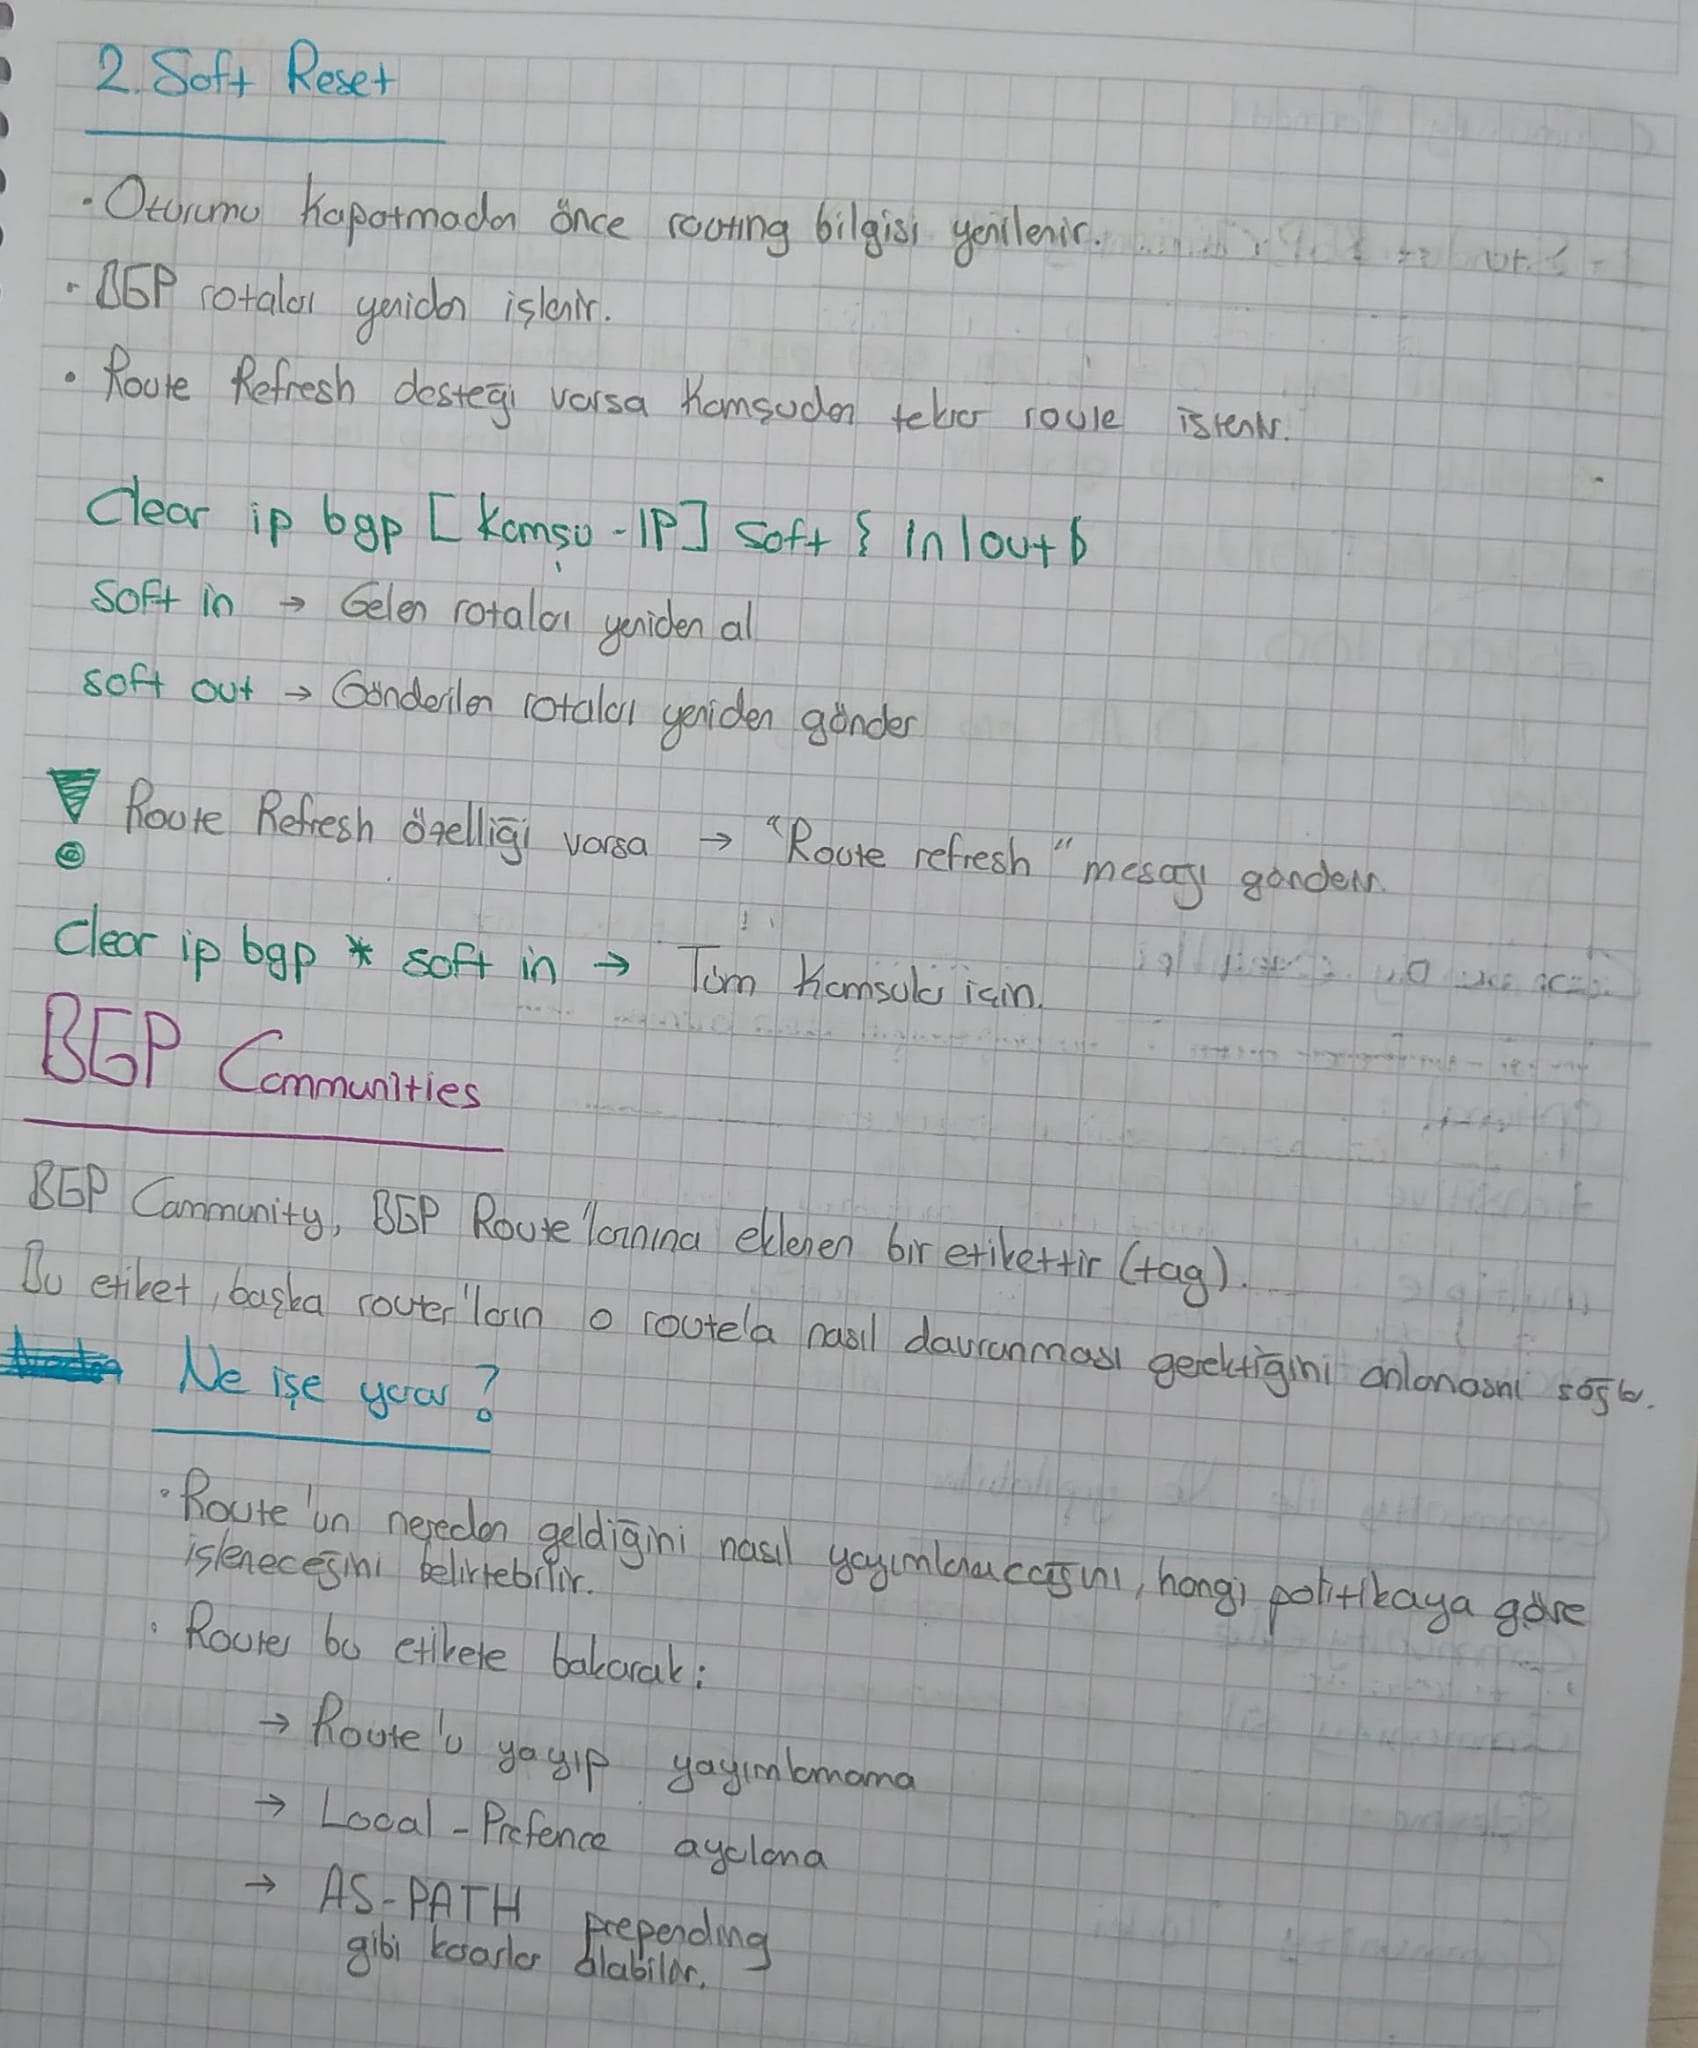 2. Soft Reset
• Oturumu kapatmadan önce routing bilgisi yenilenir.
• BGP rotaları yeniden işlenir.
• Route Refresh desteği varsa komşudan tekrar route istenir.
Clear ip bgp [komşu-IP] soft { in|out }
soft in → Gelen rotaları yeniden al
soft out → Gönderilen rotaları yeniden gönder
! Route Refresh özelliği varsa → "Route refresh" mesajı gönderir.
Clear ip bgp * soft in → Tüm komşular için.
BGP Communities
BGP Community, BGP Route'larınına eklenen bir etikettir (tag).
Bu etiket, başka router'ların o route'a nasıl davranması gerektiğini anlamasını sağlar.
Ne işe yarar?
• Route'un nereden geldiğini nasıl yayımlanacağını, hangi politikaya göre
işleneceğini belirtebilir.
• Router bu etikete bakarak:
→ Route'u yayıp yayımlamama
→ Local-Prefence ayarlama
→ AS-PATH prepending
gibi kararlar alabilir.